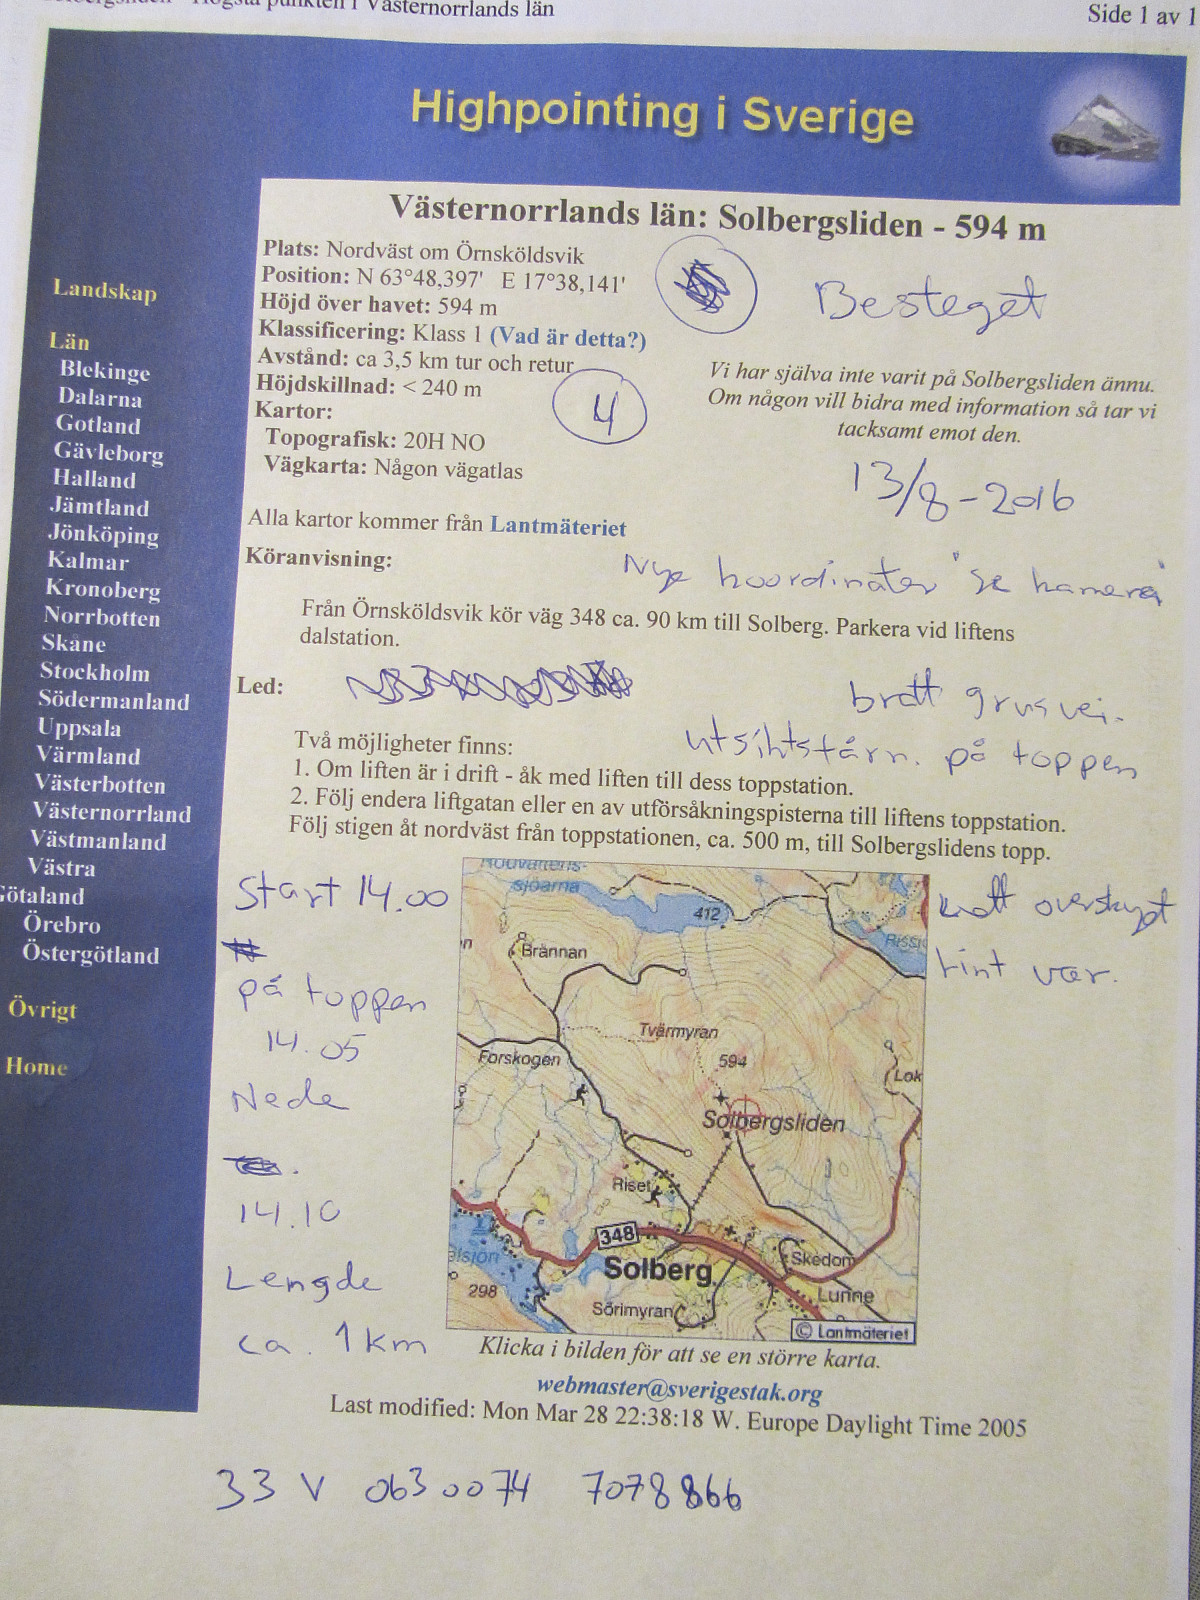 Högsta punkten i Västernorrlands län
Side 1 av 1
Highpointing i Sverige
Landskap
Län
Blekinge
Dalarna
Gotland
Gävleborg
Halland
Jämtland
Jönköping
Kalmar
Kronoberg
Norrbotten
Skåne
Stockholm
Södermanland
Uppsala
Värmland
Västerbotten
Västernorrland
Västmanland
Västra
Götaland
Örebro
Östergötland
Övrigt
Home
Västernorrlands län: Solbergsliden - 594 m
Plats: Nordväst om Örnsköldsvik
Position: N 63°48,397' E 17°38,141'
Höjd över havet: 594 m
Klassificering: Klass 1 (Vad är detta?)
Avstånd: ca 3,5 km tur och retur
Höjdskillnad: < 240 m
Kartor:
Topografisk: 20H NO
Vägkarta: Någon vägatlas
4
Besteget
Vi har själva inte varit på Solbergsliden ännu.
Om någon vill bidra med information så tar vi
tacksamt emot den.
13/8-2016
Alla kartor kommer från Lantmäteriet
Nye koordinater "se kamera"
Köranvisning:
Från Örnsköldsvik kör väg 348 ca. 90 km till Solberg. Parkera vid liftens
dalstation.
Led:
bratt grusvei.
utsiktstårn. på toppen
Två möjligheter finns:
1. Om liften är i drift - åk med liften till dess toppstation.
2. Följ endera liftgatan eller en av utförsåkningspisterna till liftens toppstation.
Följ stigen åt nordväst från toppstationen, ca. 500 m, till Solbergslidens topp.
Start 14.00
på toppen
14.05
Nede
14.10
Lengde
ca. 1 km
overskyet
fint vær.
sjöarna
412
Brännan
Tvärmyran
Forskogen
594
Lok
Solbergsliden
Riset
348
Solberg
Skedom
298
Sörimyran
Lunne
© Lantmäteriet
Klicka i bilden för att se en större karta.
webmaster@sverigestak.org
Last modified: Mon Mar 28 22:38:18 W. Europe Daylight Time 2005
33 V 0630074 7078866